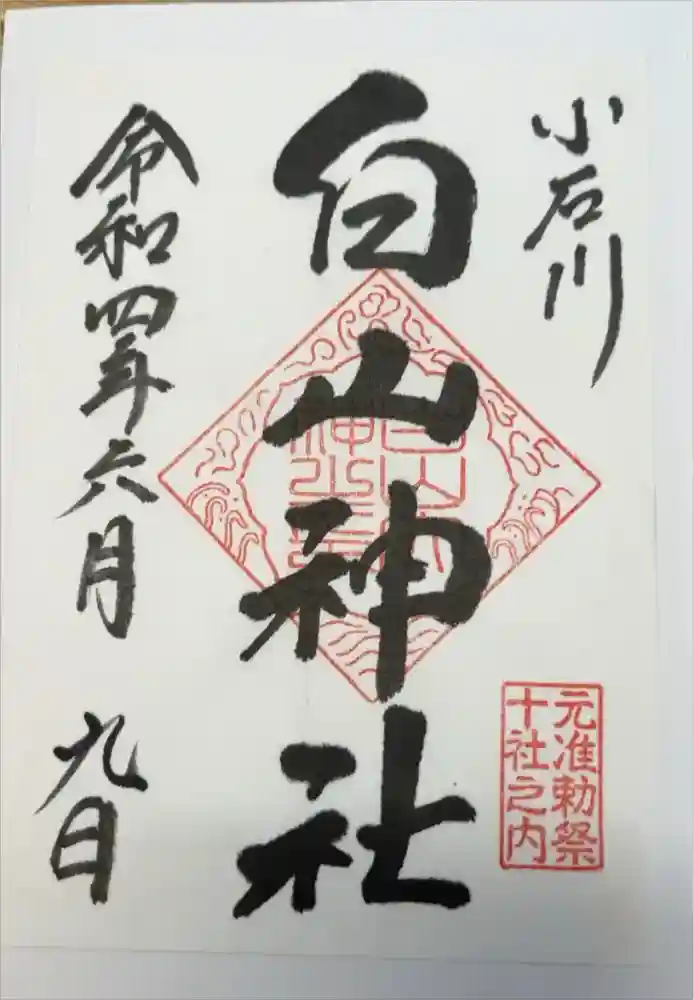 小石川
白山神社
令和四年六月九日
元准勅祭
十社之内